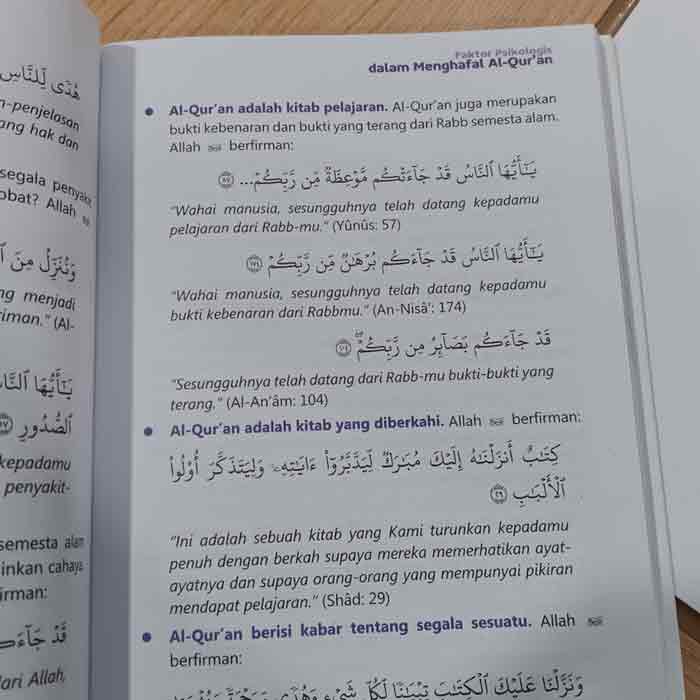 هُدًى لِّلنَّاسِ
n-penjelasan
ang hak dan
segala penyakit
obat? Allah
وَنُنَزِّلُ مِنَ
ng menjadi
riman." (Al-
يَـٰٓأَيُّهَا
ٱلصُّدُورِ
kepadamu
penyakit-
semesta alam
inkan cahaya
irman:
قَدْ
ari Allah,
Faktor Psikologis
dalam Menghafal Al-Qur'an
• Al-Qur'an adalah kitab pelajaran. Al-Qur'an juga merupakan
bukti kebenaran dan bukti yang terang dari Rabb semesta alam.
Allah berfirman:
يَـٰٓأَيُّهَا ٱلنَّاسُ قَدْ جَآءَتْكُم مَّوْعِظَةٌ مِّن رَّبِّكُمْ...
"Wahai manusia, sesungguhnya telah datang kepadamu
pelajaran dari Rabb-mu." (Yûnûs: 57)
يَـٰٓأَيُّهَا ٱلنَّاسُ قَدْ جَآءَكُم بُرْهَـٰنٌ مِّن رَّبِّكُمْ
"Wahai manusia, sesungguhnya telah datang kepadamu
bukti kebenaran dari Rabbmu." (An-Nisâ': 174)
قَدْ جَآءَكُم بَصَآئِرُ مِن رَّبِّكُمْ ۖ
"Sesungguhnya telah datang dari Rabb-mu bukti-bukti yang
terang." (Al-An'âm: 104)
• Al-Qur'an adalah kitab yang diberkahi. Allah berfirman:
كِتَـٰبٌ أَنزَلْنَـٰهُ إِلَيْكَ مُبَـٰرَكٌ لِّيَدَّبَّرُوٓا۟ ءَايَـٰتِهِۦ وَلِيَتَذَكَّرَ أُو۟لُوا۟
ٱلْأَلْبَـٰبِ ٢٩
"Ini adalah sebuah kitab yang Kami turunkan kepadamu
penuh dengan berkah supaya mereka memerhatikan ayat-
ayatnya dan supaya orang-orang yang mempunyai pikiran
mendapat pelajaran." (Shâd: 29)
• Al-Qur'an berisi kabar tentang segala sesuatu. Allah
berfirman:
وَنَزَّلْنَا عَلَيْكَ ٱلْكِتَـٰبَ تِبْيَـٰنًا لِّكُلِّ شَىْءٍ وَهُدًى